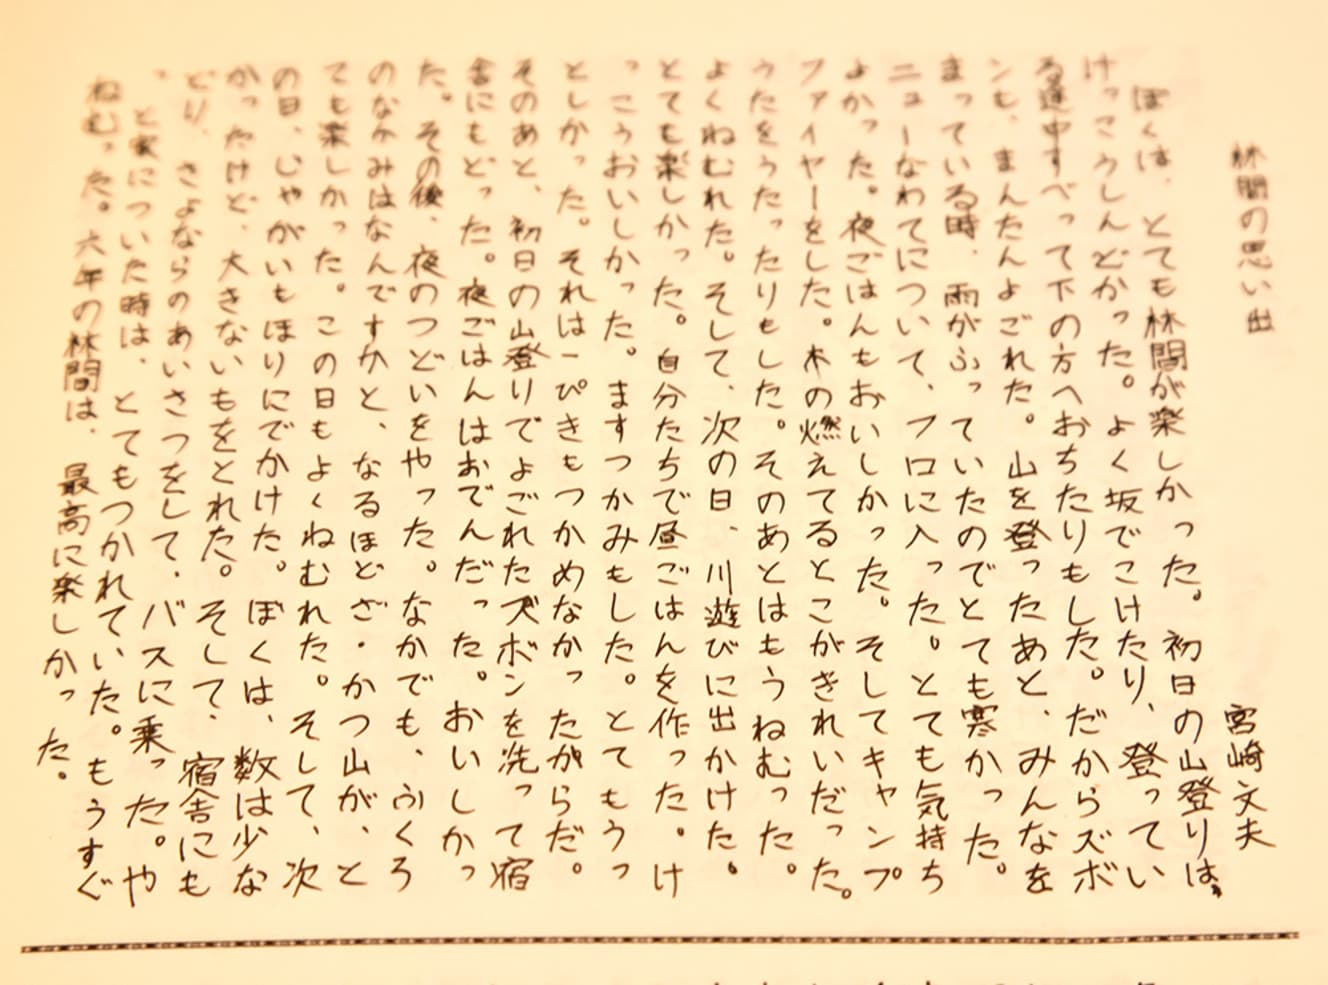 林間の思い出
宮崎文夫
ぼくは、とても林間が楽しかった。初日の山登りは、
けっこうしんどかった。よく坂でこけたり、登ってい
る途中すべって下の方へおちたりもした。だからズボ
ンも、まんたんよごれた。山を登ったあと、みんなを
まっている時、雨がふっていたのでとても寒かった。
ニューなわてについて、フロに入った。とても気持ち
よかった。夜ごはんもおいしかった。そしてキャンプ
ファイヤーをした。木の燃えてるとこがきれいだった。
うたをうたったりもした。そのあとはもうねむった。
よくねむれた。そして、次の日、川遊びに出かけた。
とても楽しかった。自分たちで昼ごはんを作った。け
っこうおいしかった。ますつかみもした。とてもうっ
としかった。それは一ぴきもつかめなかったがらだ。
そのあと、初日の山登りでよごれたズボンを洗って宿
舎にもどった。夜ごはんはおでんだった。おいしかっ
た。その後、夜のつどいをやった。なかでも、ふくろ
のなかみはなんですかと、なるほどざ・かつ山が、と
ても楽しかった。この日もよくねむれた。そして、次
の日、じゃがいもほりにでかけた。ぼくは、数は少な
かったけど、大きないもをとれた。そして、宿舎にも
どり、さよならのあいさつをして、バスに乗った。や
っと家についた時は、とてもつかれていた。もうすぐ
ねむった。六年の林間は、最高に楽しかった。